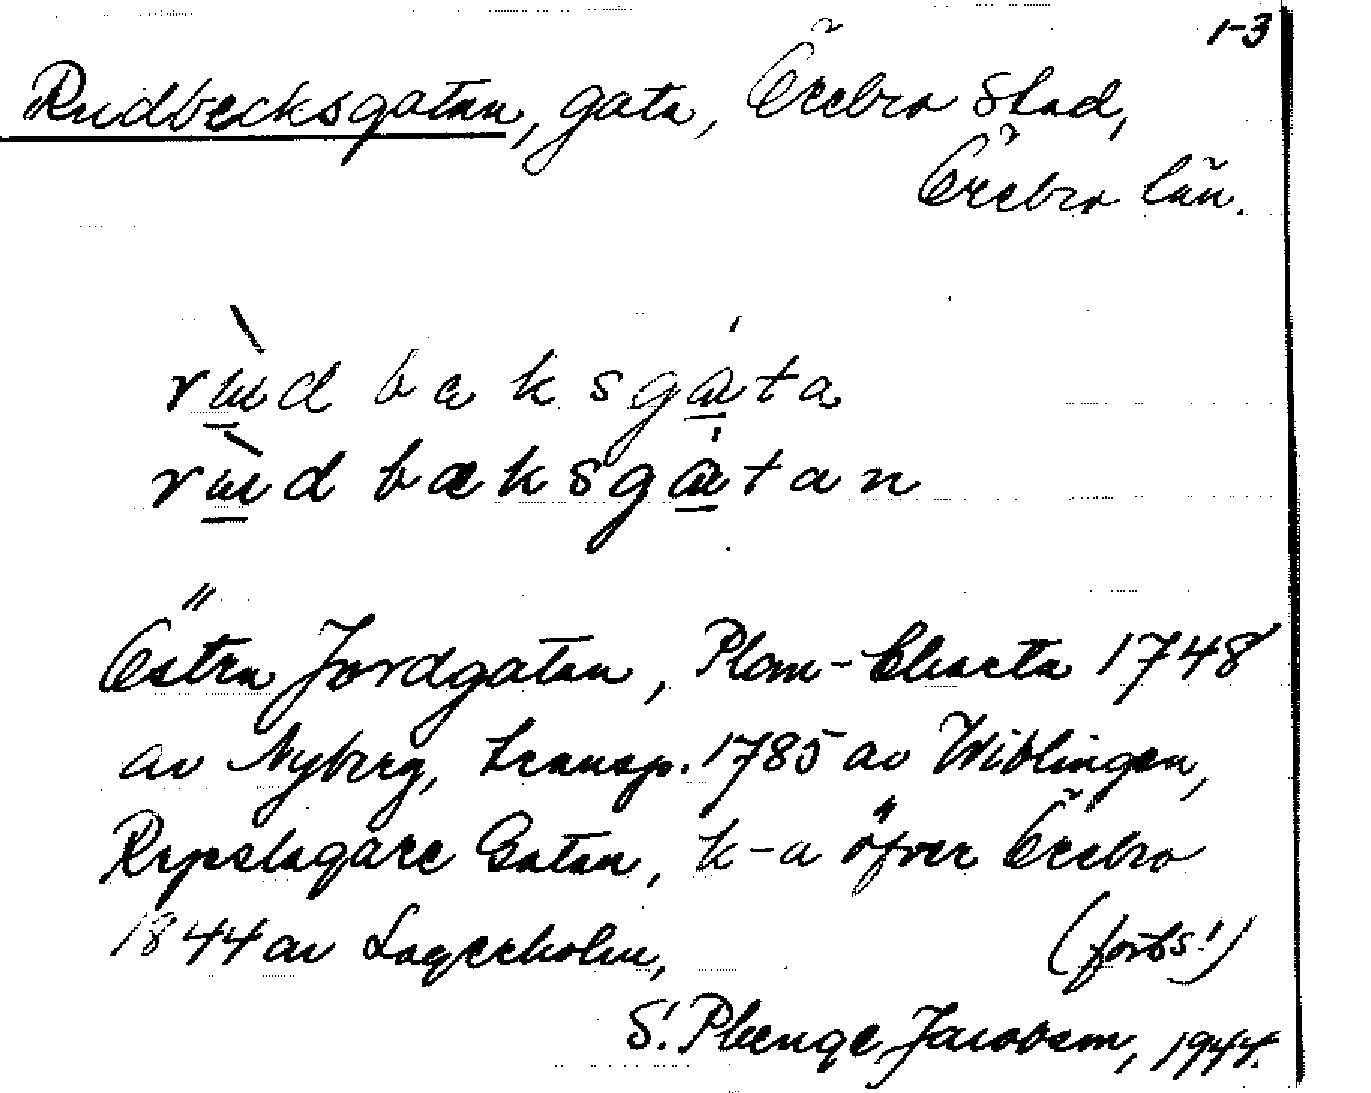 1-3
Rudbecksgatan, gata, Örebro stad,
Örebro län.
rùd bæksgáta
rùd bæksgátan
Östra Jordgatan, Plan-Charta 1748
av Nyberg, transp. 1785 av Wiblingen,
Repslagare Gatan, k-a öfver Örebro
1844 av Lagerholm, (forts!)
S. Plenge Jacobsen, 1944.